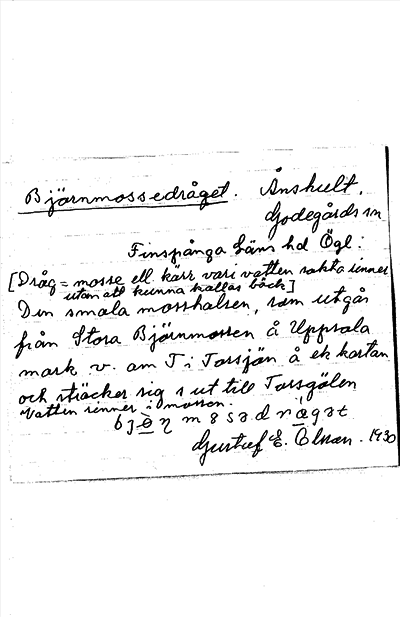 Björnmossedråget. Ånshult.
Godegårds sn
Finspånga Läns hd Ögl.
[Dråg = mosse ell kärr vari vatten sakta rinner
utan att kunna kallas bäck]
Den smala mosshalsen, som utgår
från Stora Björnmossen å Uppsala
mark v. om T i Torsjön å ek kartan
och sträcker sig s ut till Torsgölen
Vatten rinner i mossen.
Gustuf E. Olsson. 1930